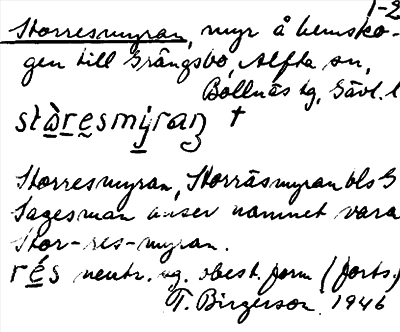 1-2
Storresmyran, myr å hemsko-
gen till Grängsbo, Alfta sn,
Bollnäs tg, Gävl. l
stàresmyraṉ †
Storresmyran, Storråsmyran bls G
Sagesman anser namnet vara
Stor-res-myran.
rés neutr. sg. obest. form (forts.)
T. Birgerson 1946